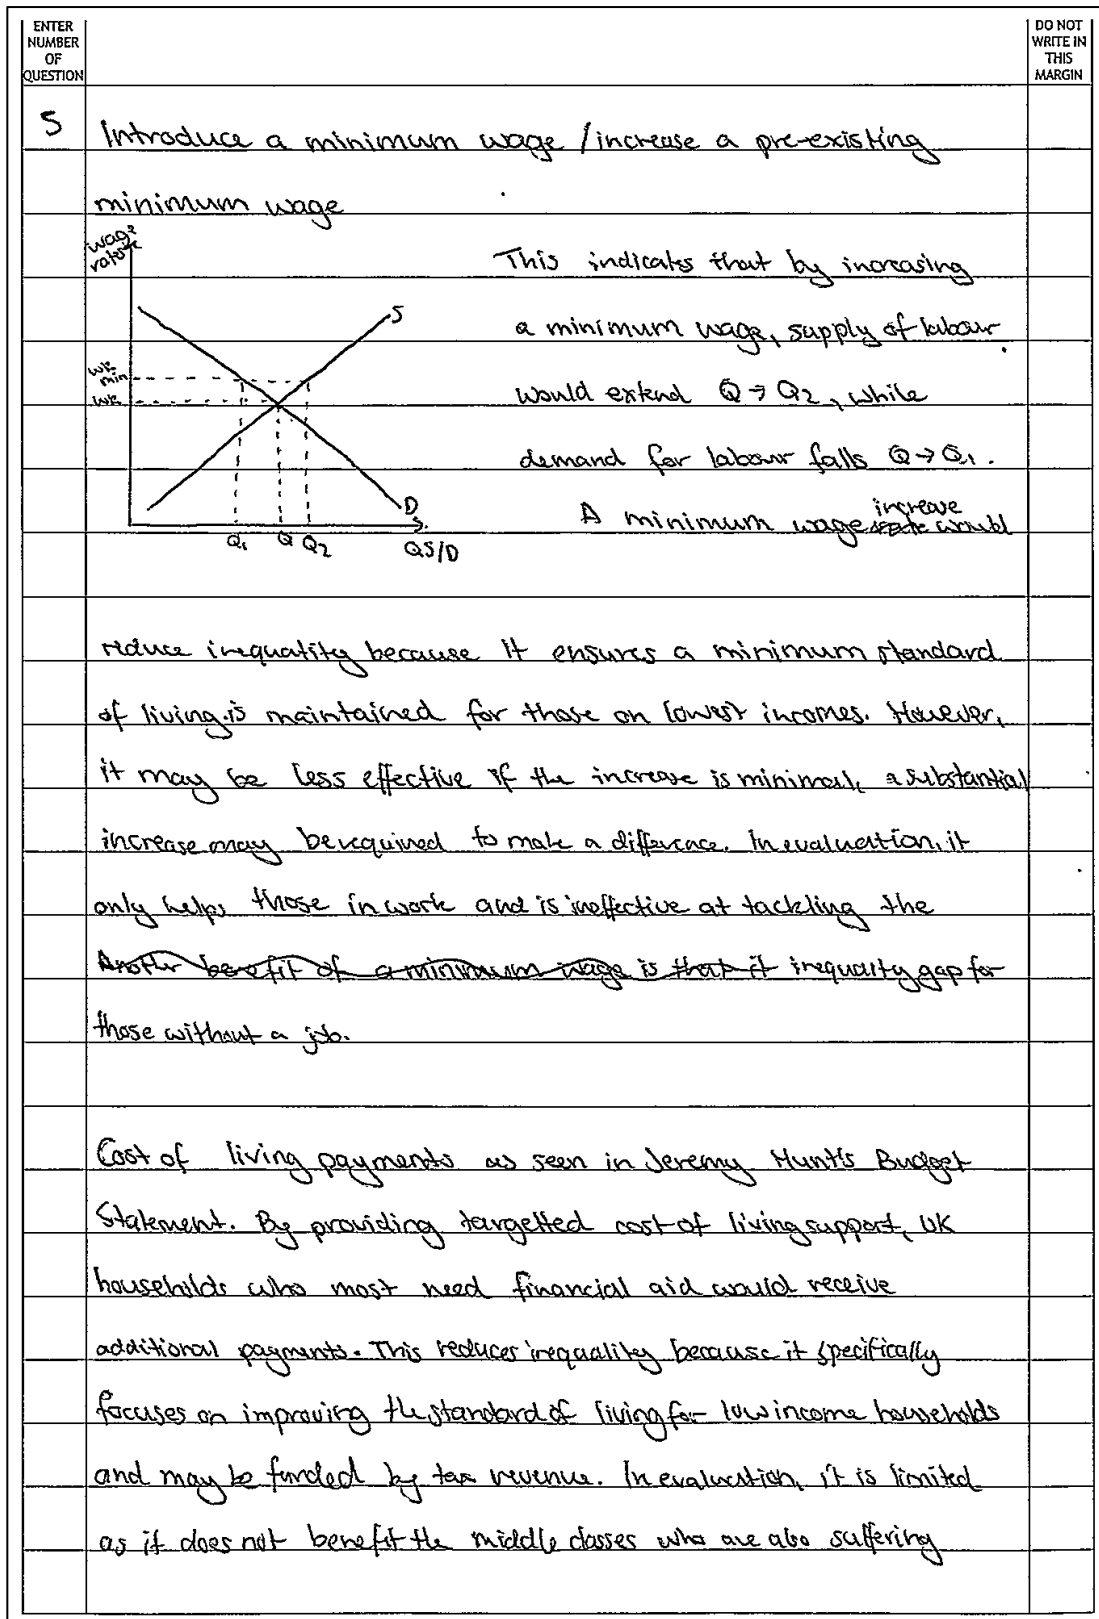 ENTER
NUMBER
OF
QUESTION
DO NOT
WRITE IN
THIS
MARGIN
5
Introduce a minimum wage / increase a pre-existing
minimum wage
wage
rates
wr
min
wr
S
D
Q1 Q Q2
QS/D
This indicates that by increasing
a minimum wage, supply of labour
would extend Q → Q2, while
demand for labour falls Q → Q1.
A minimum wage increase would
reduce inequality because it ensures a minimum standard
of living is maintained for those on lowest incomes. However,
it may be less effective if the increase is minimal, a substantial
increase may be required to make a difference. In evaluation, it
only helps those in work and is ineffective at tackling the
Another benefit of a minimum wage is that it inequality gap for
those without a job.
Cost of living payments as seen in Jeremy Hunt's Budget
Statement. By providing targetted cost of living support, UK
households who most need financial aid would receive
additional payments. This reduces inequality because it specifically
focuses on improving the standard of living for low income households
and may be funded by tax revenue. In evaluation, it is limited
as it does not benefit the middle classes who are also suffering